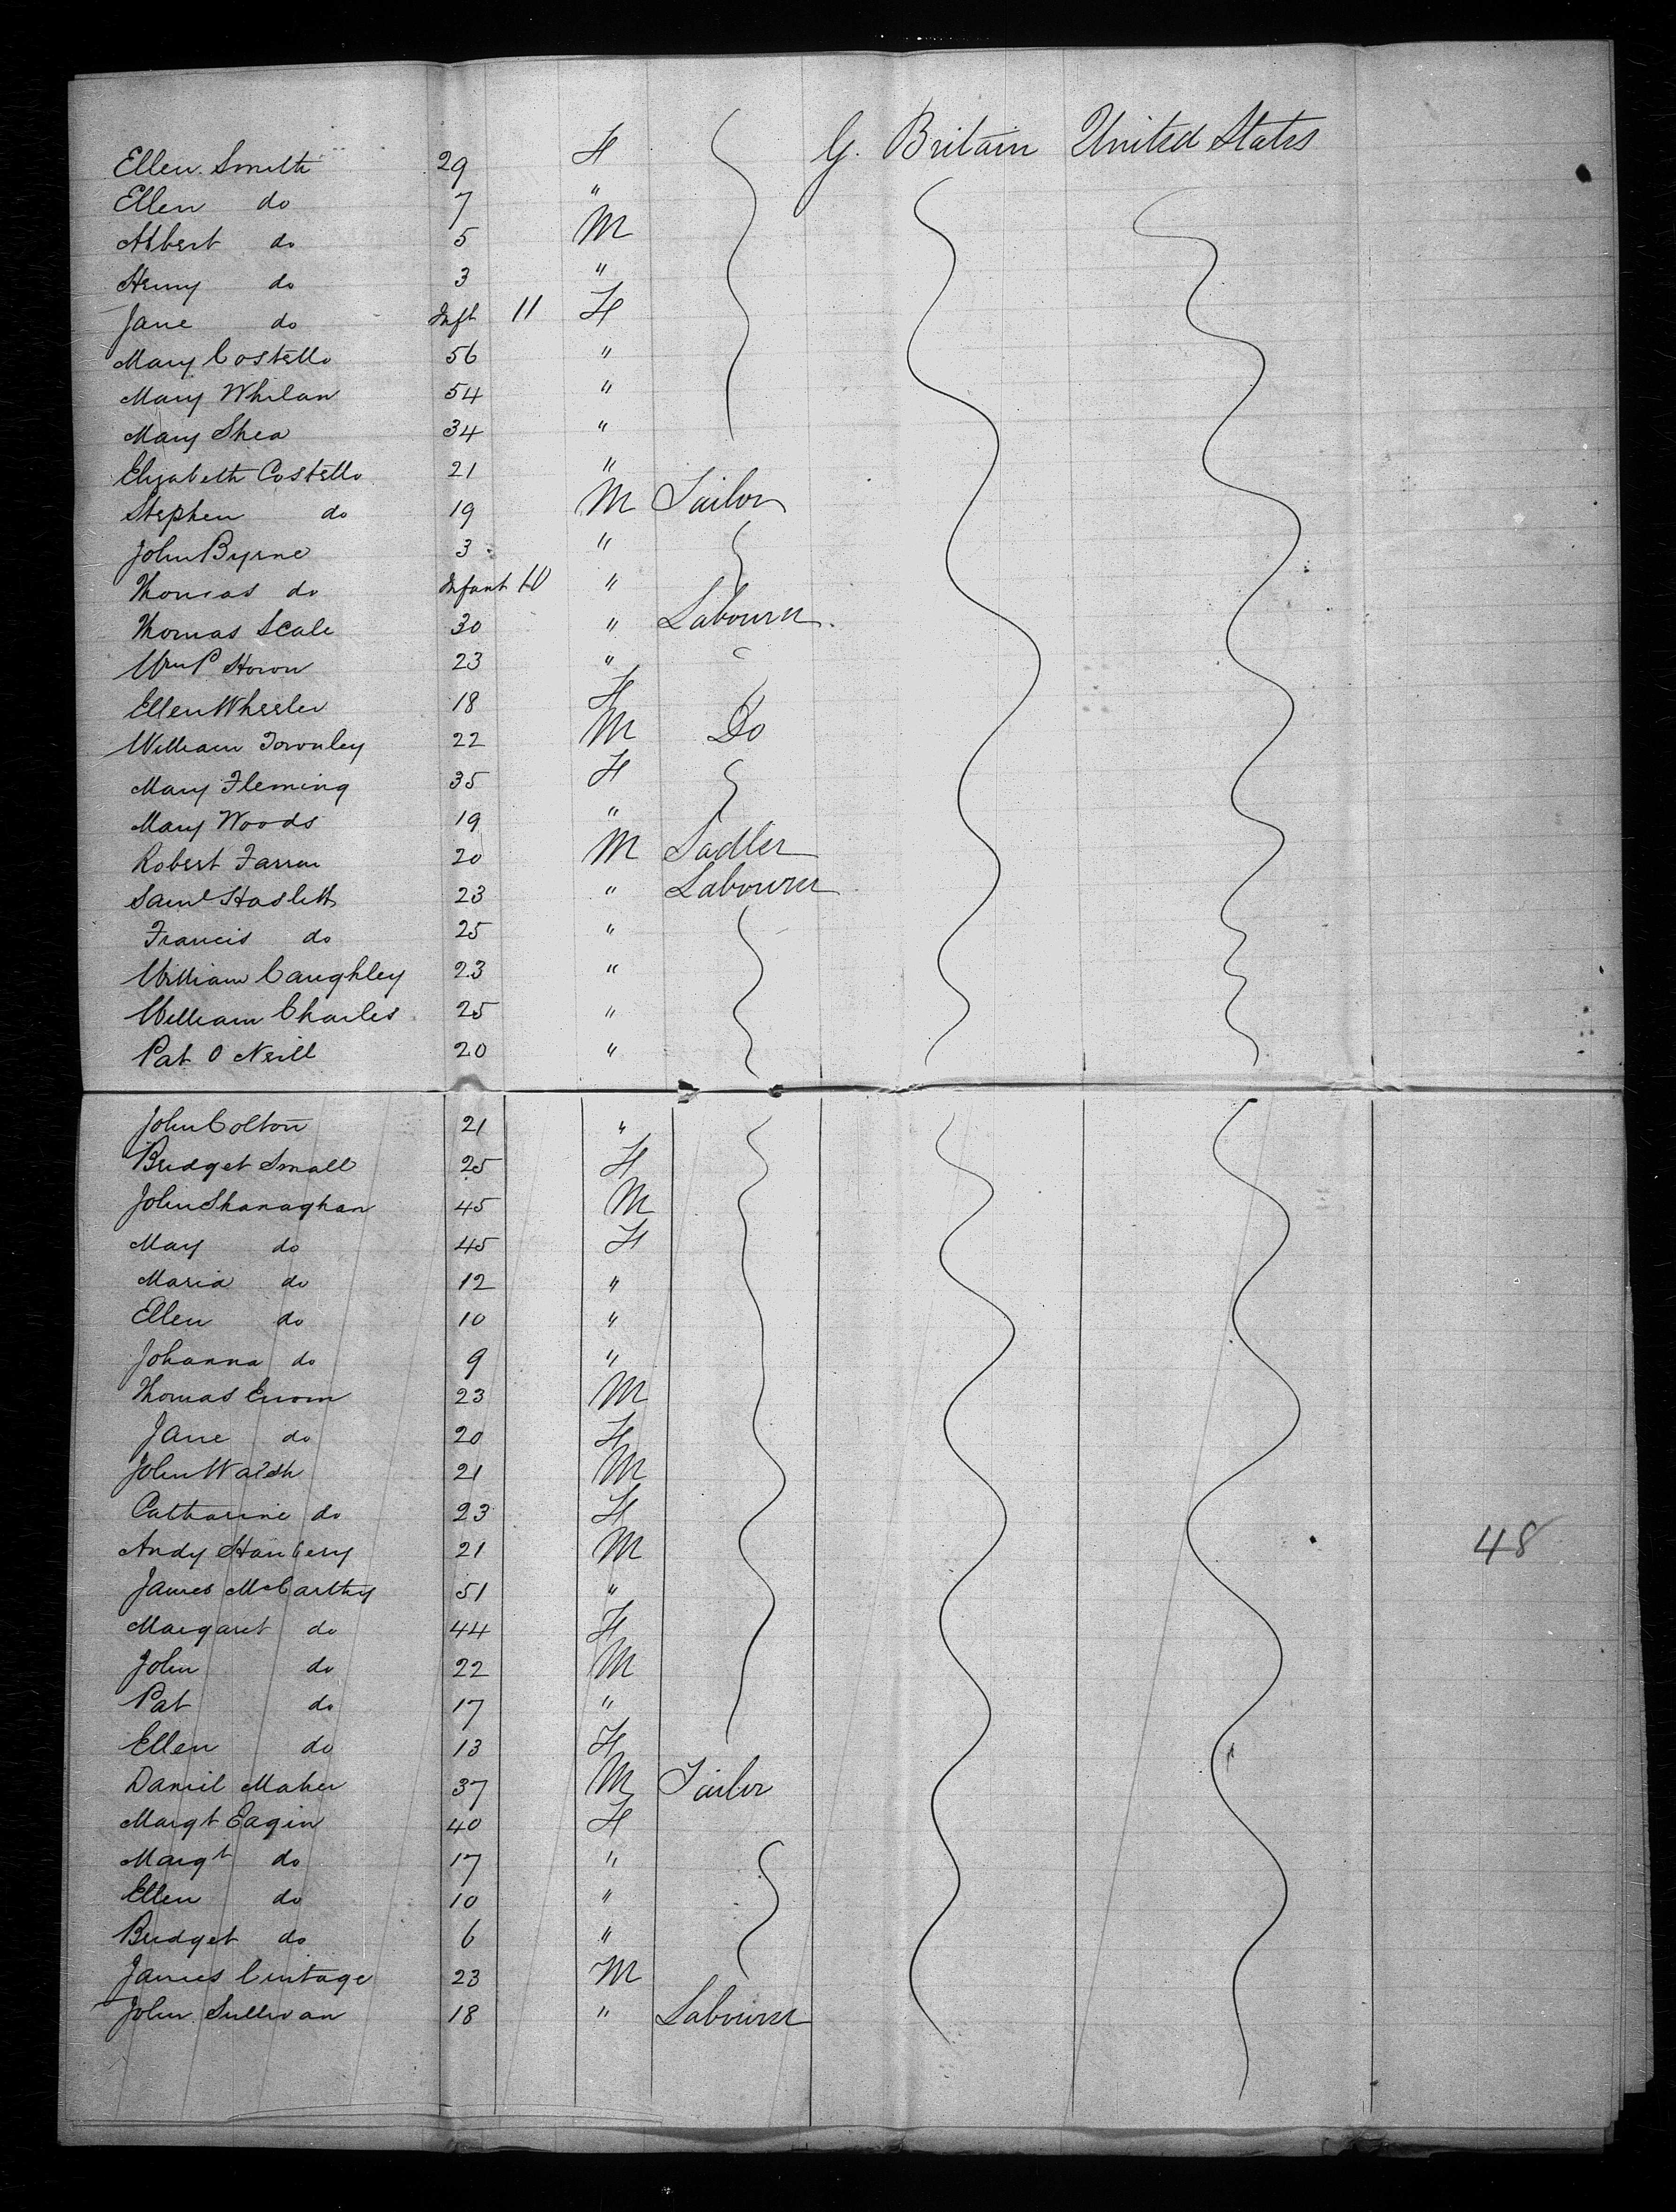 Ellen Smith 29 F G. Britain United States
Ellen do 7 "
Albert do 5 M
Henry do 3 "
Jane do Inft 11 F
Mary Costello 56 "
Mary Whelan 54 "
Mary Shea 34 "
Elizabeth Costello 21 "
Stephen do 19 M Tailor
John Byrne 3 "
Thomas do Infant 10 "
Thomas Scale 30 " Labourer
Wm P 23 "
Ellen Wheeler 18 F
William Townley 22 M Do
Mary Fleming 35 F
Mary Woods 19 "
Robert Farren 20 M Sadler
Saml Haslett 23 " Labourer
Francis do 25 "
William Caughley 23 "
William Charles 25 "
Pat O Neill 20 "
John Colton 21 "
Bridget Small 25 F
John Shanaghan 45 M
May do 45 F
Maria do 12 "
Ellen do 10 "
Johanna do 9 "
Thomas 23 M
Jane do 20 F
John Walsh 21 M
Catharine do 23 F
Andy 21 M
James McCarthy 51 "
Margaret do 44 F
John do 22 M
Pat do 17 "
Ellen do 13 F
Daniel Maher 37 M Tailor
Margt Eagin 40 F
Margt do 17 "
Ellen do 10 "
Bridget do 6 "
James 23 M
John Sullivan 18 " Labourer
48